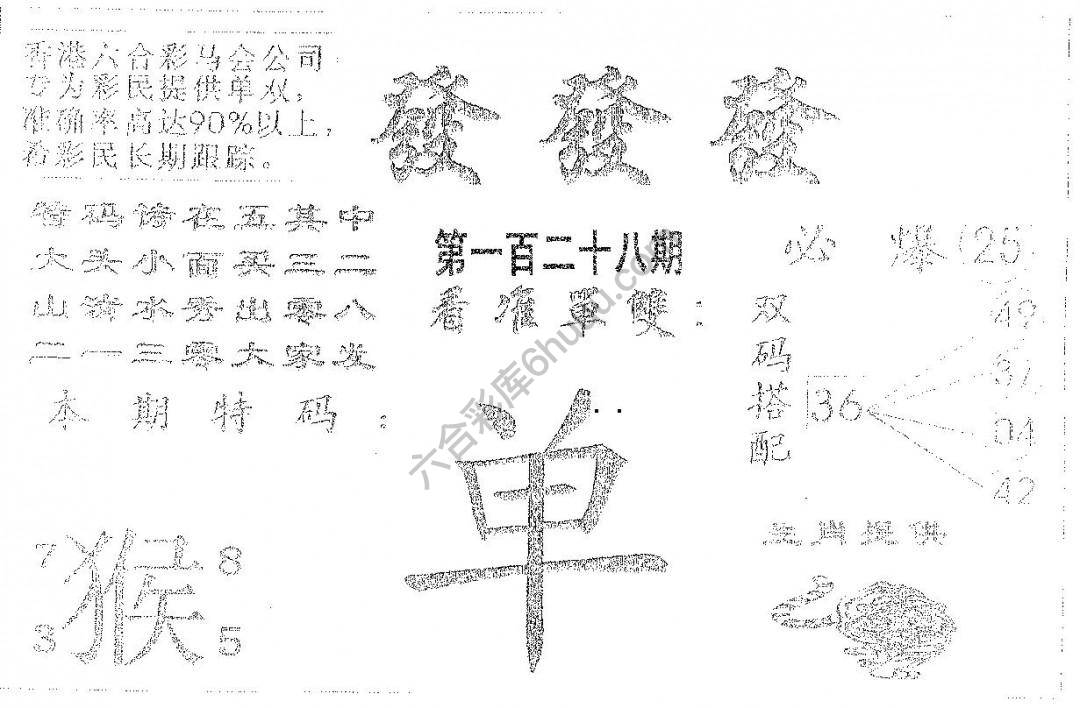 香港六合彩马会公司
专为彩民提供单双,
准确率高达90%以上,
希彩民长期跟踪。
發 發 發
特码诗在五其中
大头小面买三二
山清水秀出零八
二一三零大家发
本期特码:
第一百二十八期
看准單雙:
单
必爆(25)
双码搭配
36
49
37
04
42
7 8
猴
3 5
生肖提供
六合彩库6huqu.com